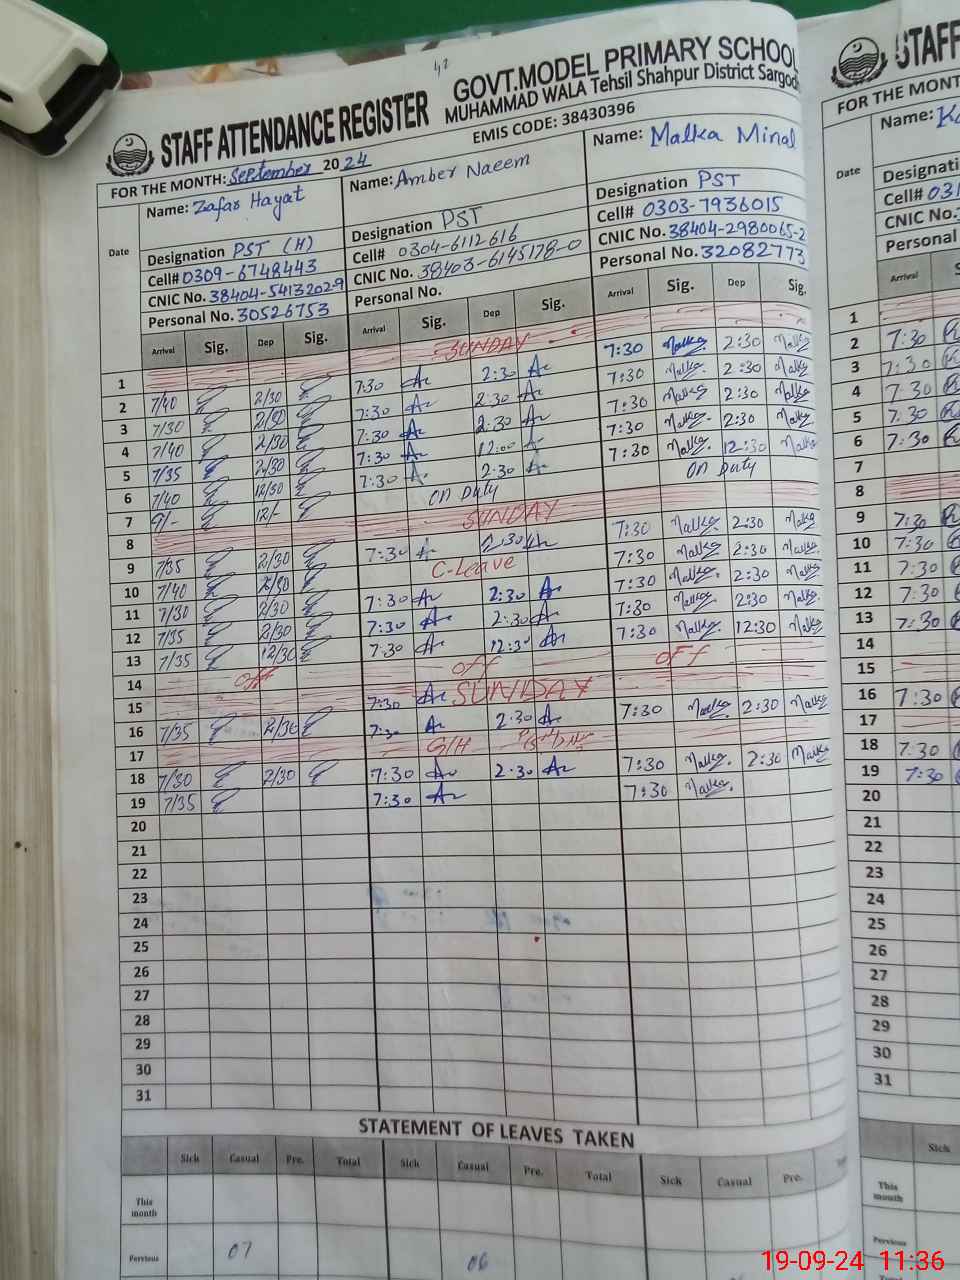 42
STAFF ATTENDANCE REGISTER
GOVT.MODEL PRIMARY SCHOOL
MUHAMMAD WALA Tehsil Shahpur District Sargodh
EMIS CODE: 38430396
FOR THE MONTH: September 2024
Name: Zafar Hayat Name: Amber Naeem Name: Malka Minal
Date Designation PST (H) Designation PST Designation PST
Cell# 0309-6748443 Cell# 0304-6112616 Cell# 0303-7936015
CNIC No. 38404-5413202-9 CNIC No. 38403-6145178-0 CNIC No. 38404-2980065-2
Personal No. 30526753 Personal No. Personal No. 32082773
Arrival Sig. Dep Sig. Arrival Sig. Dep Sig. Arrival Sig. Dep Sig.
1 SUNDAY
2 7/40 2/30 7:30 2:30 7:30 Malka 2:30 Malka
3 7/30 2/30 7:30 2:30 7:30 Malka 2:30 Malka
4 7/40 2/30 7:30 2:30 7:30 Malka 2:30 Malka
5 7/35 2/30 7:30 12:00 7:30 Malka 2:30 Malka
6 7/40 12/30 7:30 2:30 7:30 Malka 12:30 Malka
7 9/- 12/- ON Duty ON Duty
8 SUNDAY
9 7/35 2/30 7:30 2:30 7:30 Malka 2:30 Malka
10 7/40 2/30 C-Leave 7:30 Malka 2:30 Malka
11 7/30 2/30 7:30 2:30 7:30 Malka 2:30 Malka
12 7/35 2/30 7:30 2:30 7:30 Malka 2:30 Malka
13 7/35 12/30 7:30 12:30 7:30 Malka 12:30 Malka
14 off off OFF
15 7:30 SUNDAY
16 7/35 2/30 7:30 2:30 7:30 Malka 2:30 Malka
17 G/H
18 7/30 2/30 7:30 2:30 7:30 Malka 2:30 Malka
19 7/35 7:30 7:30 Malka
20
21
22
23
24
25
26
27
28
29
30
31
STATEMENT OF LEAVES TAKEN
Sick Casual Pre. Total Sick Casual Pre. Total Sick Casual Pre.
This month
Pervious 07 06
STAFF
FOR THE MONT
Name:
Date Designati
Cell# 031
CNIC No.
Personal
Arrival
1
2 7:30
3 7:30
4 7:30
5 7:30
6 7:30
7
8
9 7:30
10 7:30
11 7:30
12 7:30
13 7:30
14
15
16 7:30
17
18 7:30
19 7:30
20
21
22
23
24
25
26
27
28
29
30
31
Sick
This month
Pervious
19-09-24 11:36